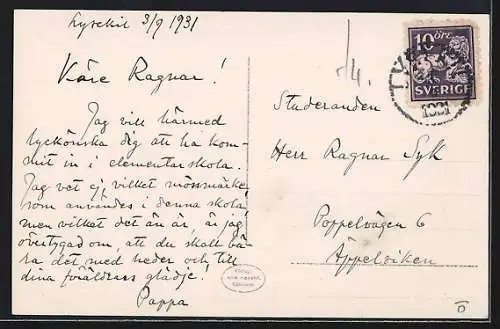 Lysekil 3/9 1931
Käre Ragnar!
Jag vill härmed
lyckönska dig att ha kom-
mit in i elementarskola.
Jag vet ej, vilket mössmärke,
som användes i denna skola,
men vilket det än är, är jag
övertygad om, att du skall bä-
ra det med heder och till
dina föräldrars glädje!
Pappa
/4.
10 ÖRE
SVERIGE
LYS
1931
Studeranden
Herr Ragnar Syk
Poppelvägen 6
Äppelviken